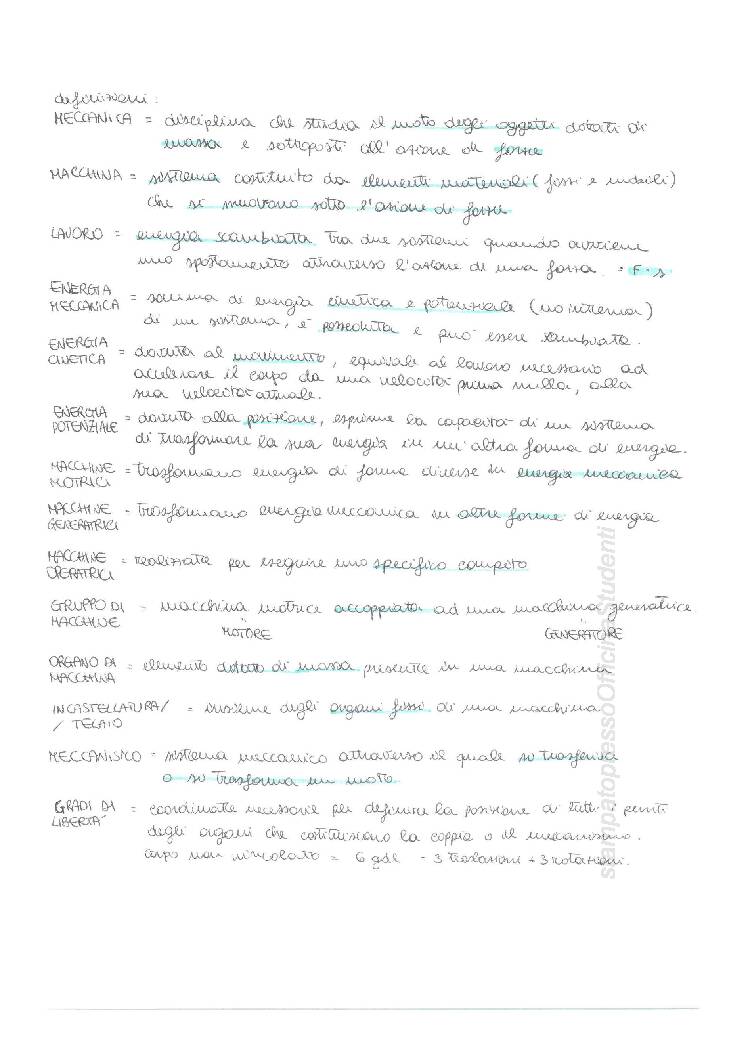 definizioni:
MECCANICA = disciplina che studia il moto degli oggetti dotati di
massa e sottoposti all'azione di forze
MACCHINA = sistema costituito da elementi materiali (fissi e mobili)
che si muovono sotto l'azione di forze
LAVORO = energia scambiata tra due sistemi quando avviene
uno spostamento attraverso l'azione di una forza. = F · s
ENERGIA
MECCANICA = somma di energia cinetica e potenziale (no interna)
di un sistema, è posseduta e può essere scambiata.
ENERGIA
CINETICA = dovuta al movimento, equivale al lavoro necessario ad
accelerare il corpo da una velocità prima nulla, alla
sua velocità attuale.
ENERGIA
POTENZIALE = dovuta alla posizione, esprime la capacità di un sistema
di trasformare la sua energia in un'altra forma di energia.
MACCHINE
MOTRICI = trasformano energia di forme diverse in energia meccanica
MACCHINE
GENERATRICI = trasformano energia meccanica in altre forme di energia
MACCHINE
OPERATRICI = realizzate per eseguire uno specifico compito
GRUPPO DI
MACCHINE = macchina motrice accoppiata ad una macchina generatrice
MOTORE GENERATORE
ORGANO DI
MACCHINA = elemento dotato di massa presente in una macchina
INCASTELLATURA/
/ TELAIO = insieme degli organi fissi di una macchina
MECCANISMO = sistema meccanico attraverso il quale si trasferisce
o si trasforma un moto.
GRADI DI
LIBERTÀ = coordinate necessarie per definire la posizione di tutti i punti
degli organi che costituiscono la coppia o il meccanismo.
corpo non vincolato = 6 gdl - 3 traslazioni + 3 rotazioni.